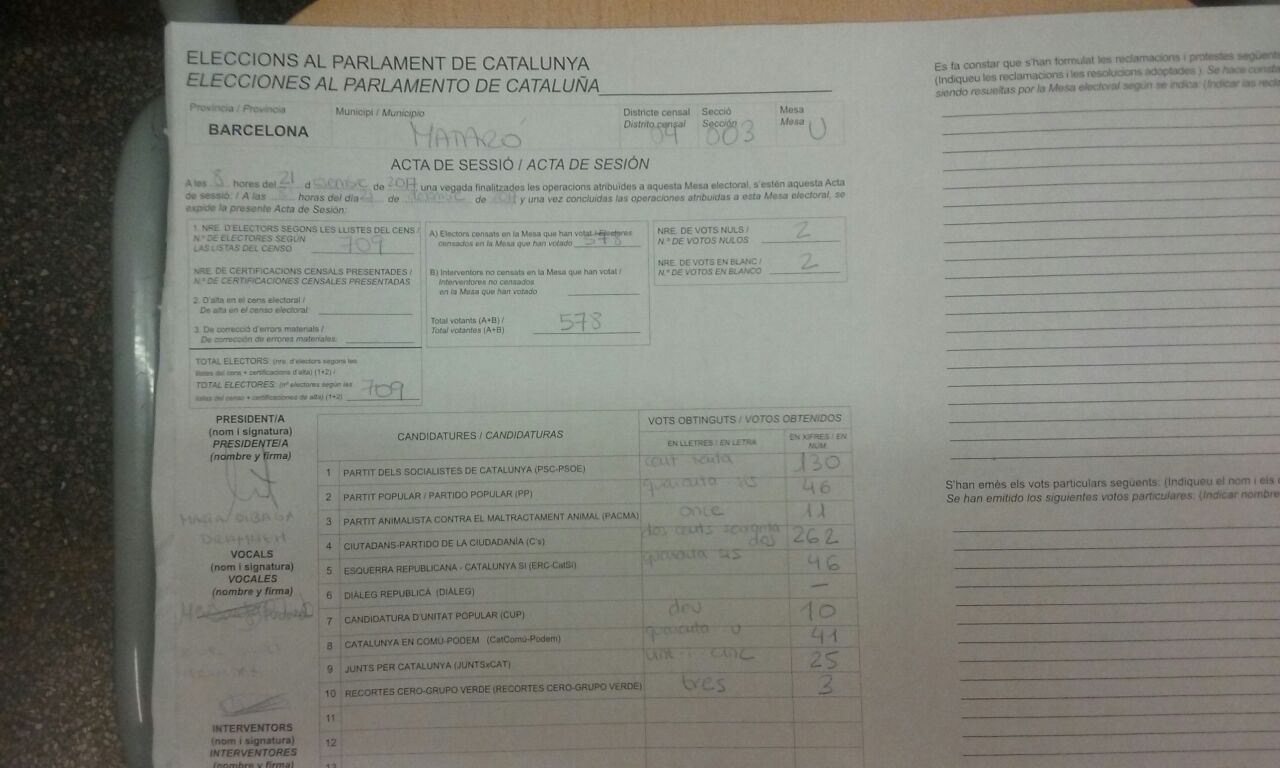 ELECCIONS AL PARLAMENT DE CATALUNYA
ELECCIONES AL PARLAMENTO DE CATALUÑA
Província / Provincia
BARCELONA
Municipi / Municipio
MATARÓ
Districte censal
Distrito censal
04
Secció
Sección
003
Mesa
Mesa
U
ACTA DE SESSIÓ / ACTA DE SESIÓN
A les 8 hores del 21 d de 2017 una vegada finalitzades les operacions atribuïdes a aquesta Mesa electoral, s'estén aquesta Acta
de sessió: / A las 8 horas del día 21 de de 2017 y una vez concluidas las operaciones atribuidas a esta Mesa electoral, se
expide la presente Acta de Sesión:
1. NRE. D'ELECTORS SEGONS LES LLISTES DEL CENS /
N.º DE ELECTORES SEGÚN
LAS LISTAS DEL CENSO 709
NRE. DE CERTIFICACIONS CENSALS PRESENTADES /
N.º DE CERTIFICACIONES CENSALES PRESENTADAS
2. D'alta en el cens electoral /
De alta en el censo electoral:
3. De correcció d'errors materials /
De corrección de errores materiales:
TOTAL ELECTORS: (nre. d'electors segons les
llistes del cens + certificacions d'alta) (1+2) /
TOTAL ELECTORES: (nº electores según las
listas del censo + certificaciones de alta) (1+2) 709
A) Electors censats en la Mesa que han votat / Electores
censados en la Mesa que han votado 578
B) Interventors no censats en la Mesa que han votat /
Interventores no censados
en la Mesa que han votado
Total votants (A+B) /
Total votantes (A+B) 578
NRE. DE VOTS NULS /
N.º DE VOTOS NULOS 2
NRE. DE VOTS EN BLANC /
N.º DE VOTOS EN BLANCO 2
PRESIDENT/A
(nom i signatura)
PRESIDENTE/A
(nombre y firma)
VOCALS
(nom i signatura)
VOCALES
(nombre y firma)
INTERVENTORS
(nom i signatura)
INTERVENTORES
(nombre y firma)
CANDIDATURES / CANDIDATURAS
VOTS OBTINGUTS / VOTOS OBTENIDOS
EN LLETRES / EN LETRA
EN XIFRES / EN
NÚM.
1 PARTIT DELS SOCIALISTES DE CATALUNYA (PSC-PSOE) cent trenta 130
2 PARTIT POPULAR / PARTIDO POPULAR (PP) quaranta sis 46
3 PARTIT ANIMALISTA CONTRA EL MALTRACTAMENT ANIMAL (PACMA) onze 11
4 CIUTADANS-PARTIDO DE LA CIUDADANÍA (C's) dos cents seixanta dos 262
5 ESQUERRA REPUBLICANA - CATALUNYA SÍ (ERC-CatSí) quaranta sis 46
6 DIÀLEG REPUBLICÀ (DIÀLEG) –
7 CANDIDATURA D'UNITAT POPULAR (CUP) deu 10
8 CATALUNYA EN COMÚ-PODEM (CatComú-Podem) quaranta u 41
9 JUNTS PER CATALUNYA (JUNTSxCAT) vint i cinc 25
10 RECORTES CERO-GRUPO VERDE (RECORTES CERO-GRUPO VERDE) tres 3
11
12
13
Es fa constar que s'han formulat les reclamacions i protestes següents
(Indiqueu les reclamacions i les resolucions adoptades ). Se hace consta
siendo resueltas por la Mesa electoral según se indica: (Indicar las recla
S'han emès els vots particulars següents: (Indiqueu el nom i els c
Se han emitido los siguientes votos particulares: (Indicar nombre